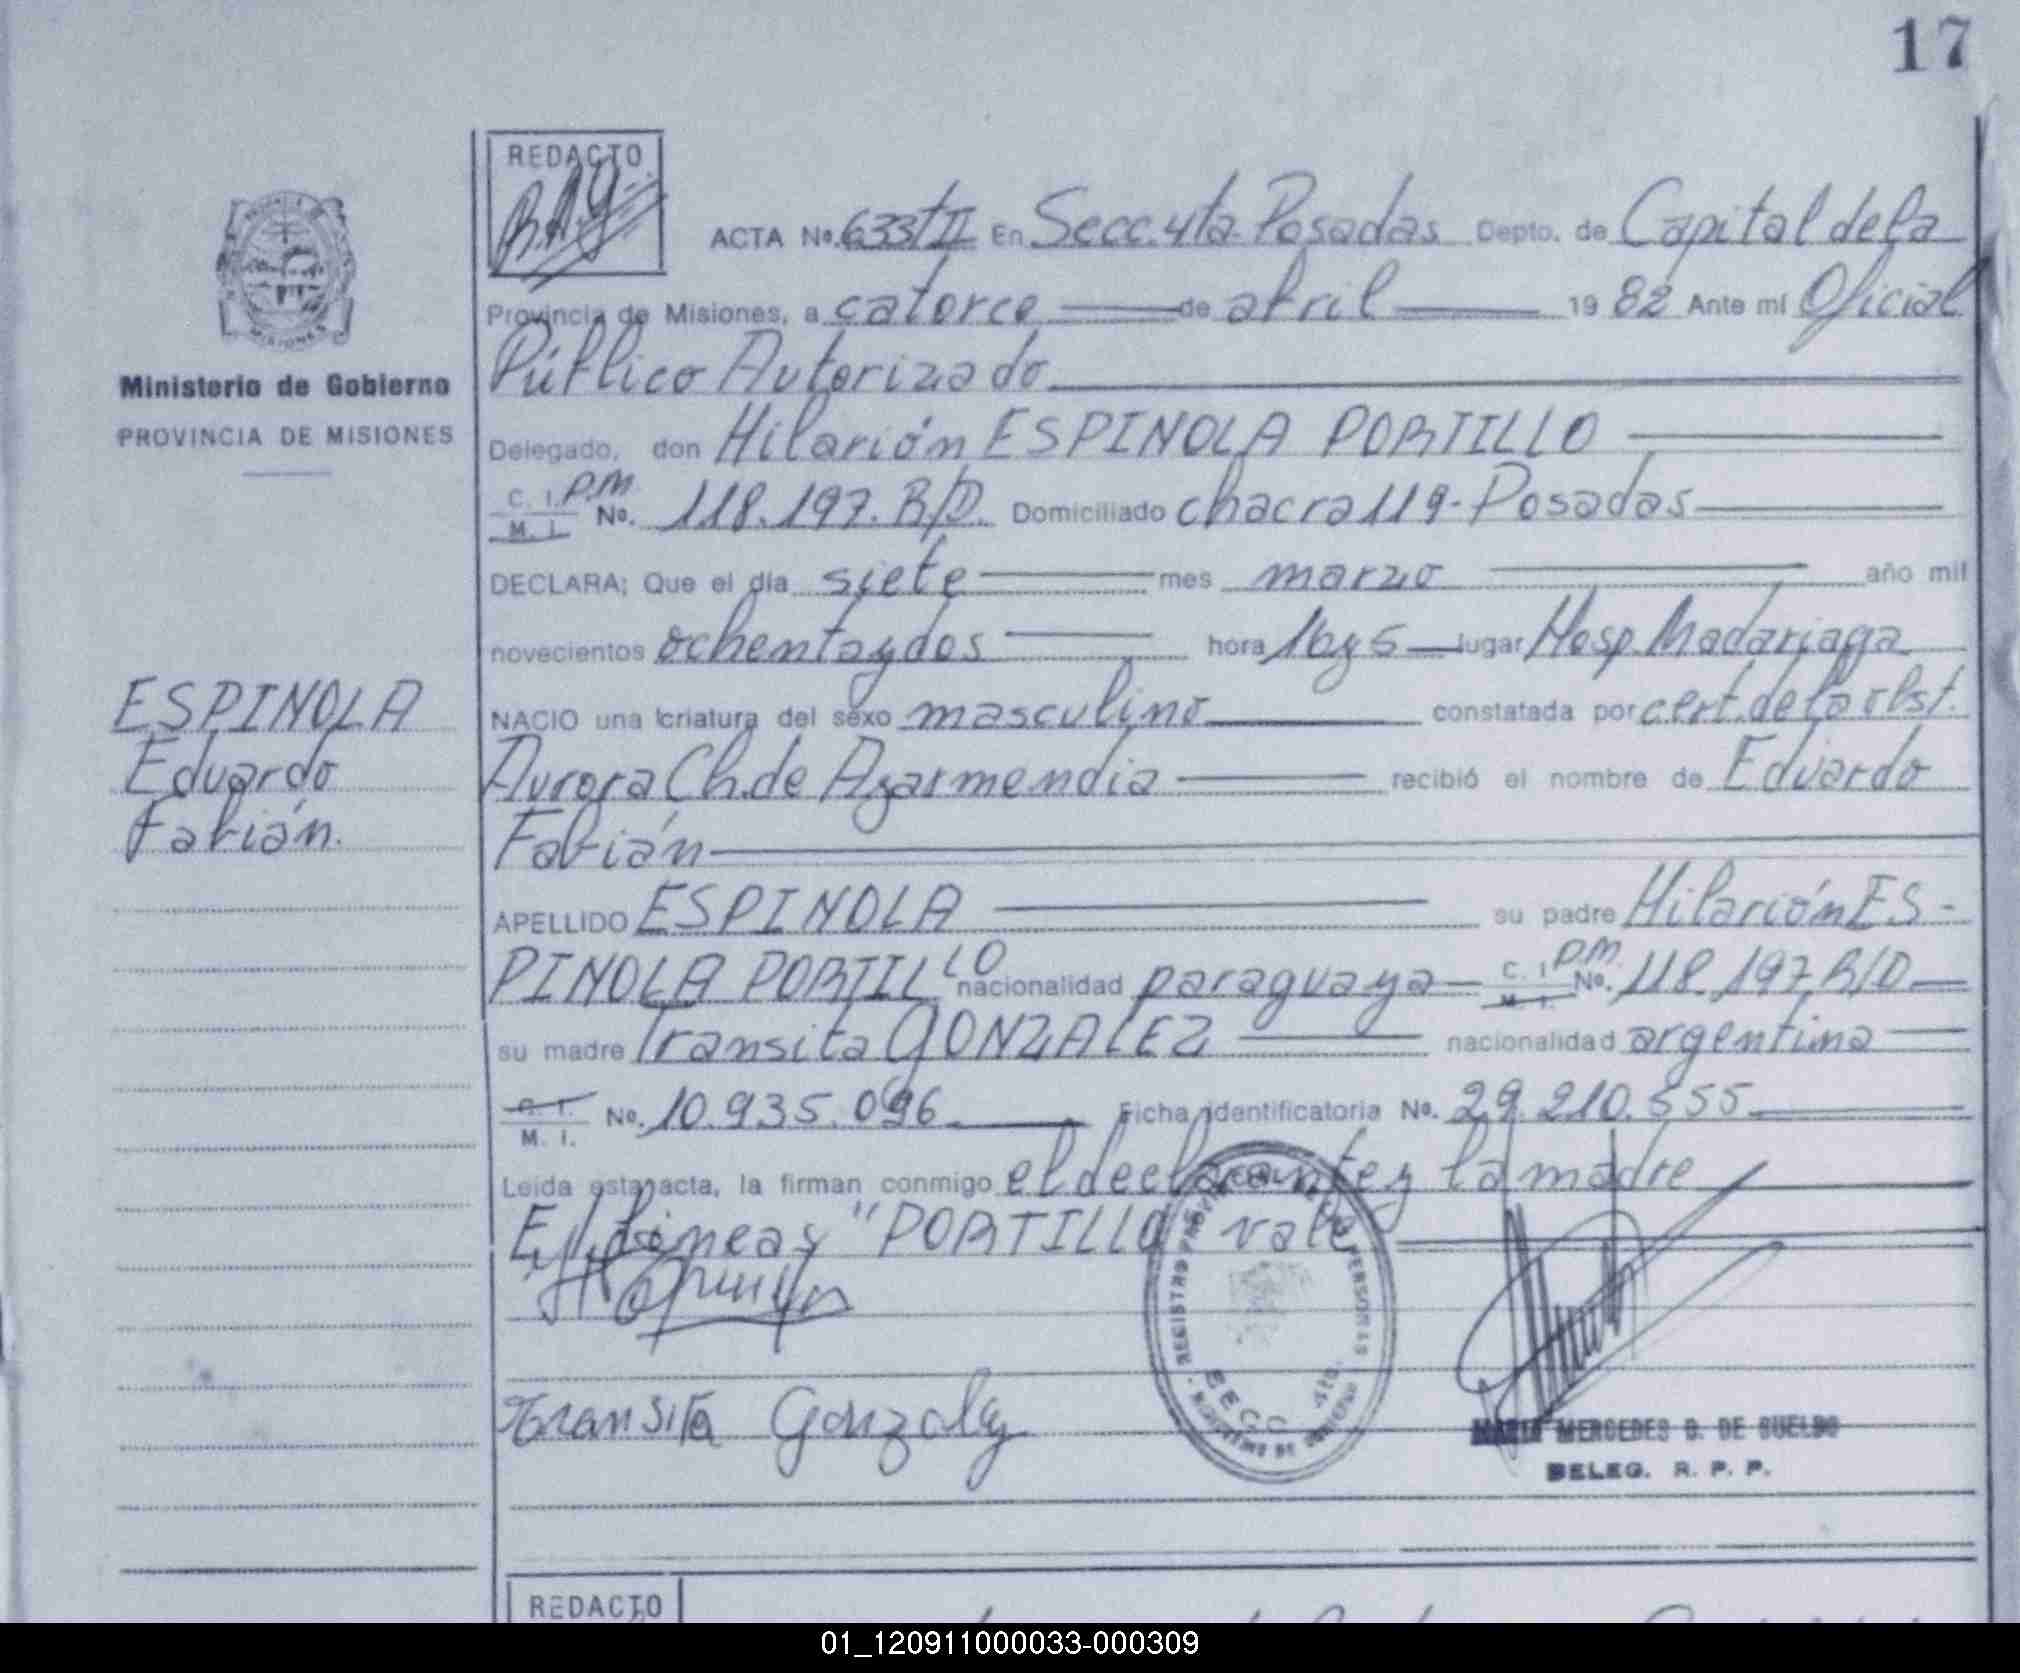 17
REDACTO
ACTA No. 633 T II En Secc. 4ta. Posadas Depto. de Capital de la
Provincia de Misiones, a catorce de abril 1982 Ante mí Oficial
Público Autorizado
Ministerio de Gobierno
PROVINCIA DE MISIONES
Delegado, don Hilarión ESPINOLA PORTILLO
C. I. P.M.
M. I. No. 118.197. R/D. Domiciliado chacra 119 - Posadas
DECLARA; Que el día siete mes marzo año mil
novecientos ochenta y dos hora 16 y 5 lugar Hosp. Madariaga
NACIO una criatura del sexo masculino constatada por cert. de la obst.
Aurora Ch. de Agarmendia recibió el nombre de Eduardo
Fabián
ESPINOLA
Eduardo
Fabián.
APELLIDO ESPINOLA su padre Hilarión ES-
PINOLA PORTILLO nacionalidad paraguaya C. I. P.M. M. I. No. 118.197 R/D
su madre Transita GONZALEZ nacionalidad argentina
C. I.
M. I. No. 10.935.096 Ficha identificatoria No. 29.210.555
Leída esta acta, la firman conmigo el declarante y la madre
E/líneas "PORTILLO" vale
Transita Gonzalez
REGISTRO PROVINCIAL DE LAS PERSONAS
SECC. 4ta.
MINISTERIO DE GOBIERNO
MARIA MERCEDES D. DE SUELDO
DELEG. R. P. P.
REDACTO
01_120911000033-000309